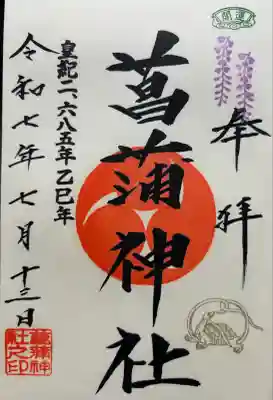 開運
奉拝
菖蒲神社
皇紀二、六八五年乙巳年
令和七年七月十三日
菖蒲神
社之印